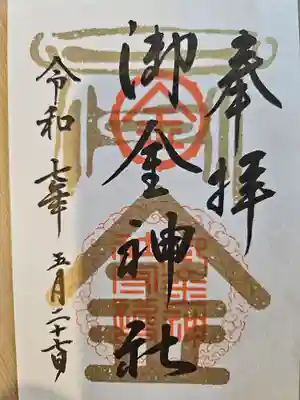 奉拝
御金神社
令和七年五月二十七日
金